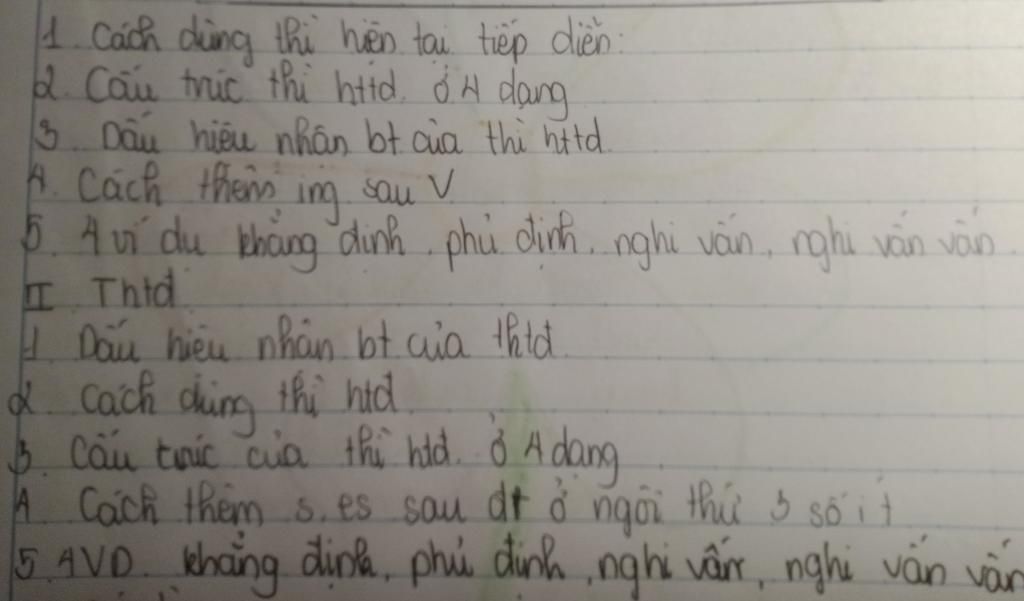 1. Cách dùng thì hiện tại tiếp diễn:
2. Cấu trúc thì httd. ở 4 dạng
3. Dấu hiệu nhận bt của thì httd.
4. Cách thêm ing sau V
5. 4 ví dụ khẳng định, phủ định, nghi vấn, nghi vấn vấn.
II Thtd
1. Dấu hiệu nhận bt của thtd.
2. Cách dùng thì htd.
3. Cấu trúc của thì htd. ở 4 dạng.
4. Cách thêm s, es sau đt ở ngôi thứ 3 số ít
5. 4VD. khẳng định, phủ định, nghi vấn, nghi vấn vấn